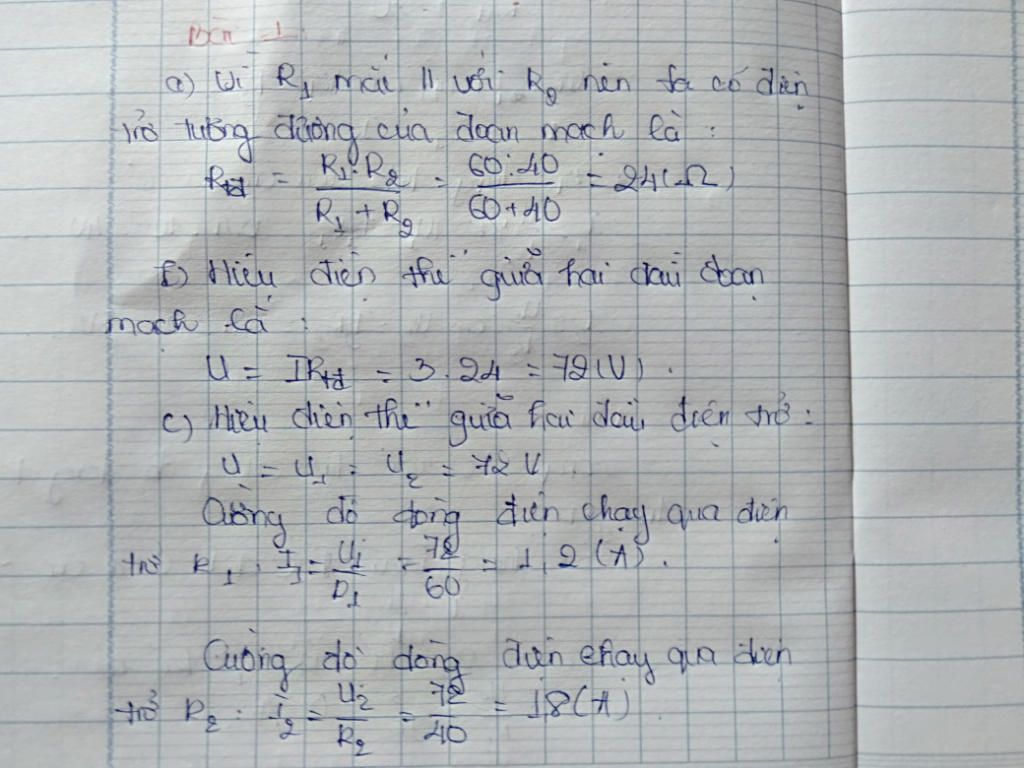 Bài 1
a) Vì R₁ mắc // với R₂ nên ta có điện
trở tương đương của đoạn mạch là :
Rtđ = R₁.R₂ / R₁ + R₂ = 60.40 / 60+40 = 24(Ω)
b) Hiệu điện thế giữa hai đầu đoạn
mạch là :
U = IRtđ = 3.24 = 72(V).
c) Hiệu điện thế giữa hai đầu điện trở :
U = U₁ = U₂ = 72 V
Cường độ dòng điện chạy qua điện
trở R₁ : I₁ = U₁ / R₁ = 72 / 60 = 1,2 (A).
Cường độ dòng điện chạy qua điện
trở R₂ : I₂ = U₂ / R₂ = 72 / 40 = 1,8(A)